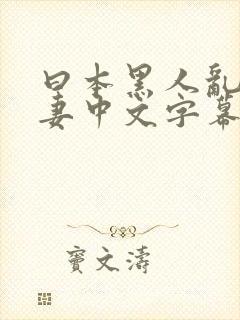 日本黑人亂
妻中文字幕
竇文濤